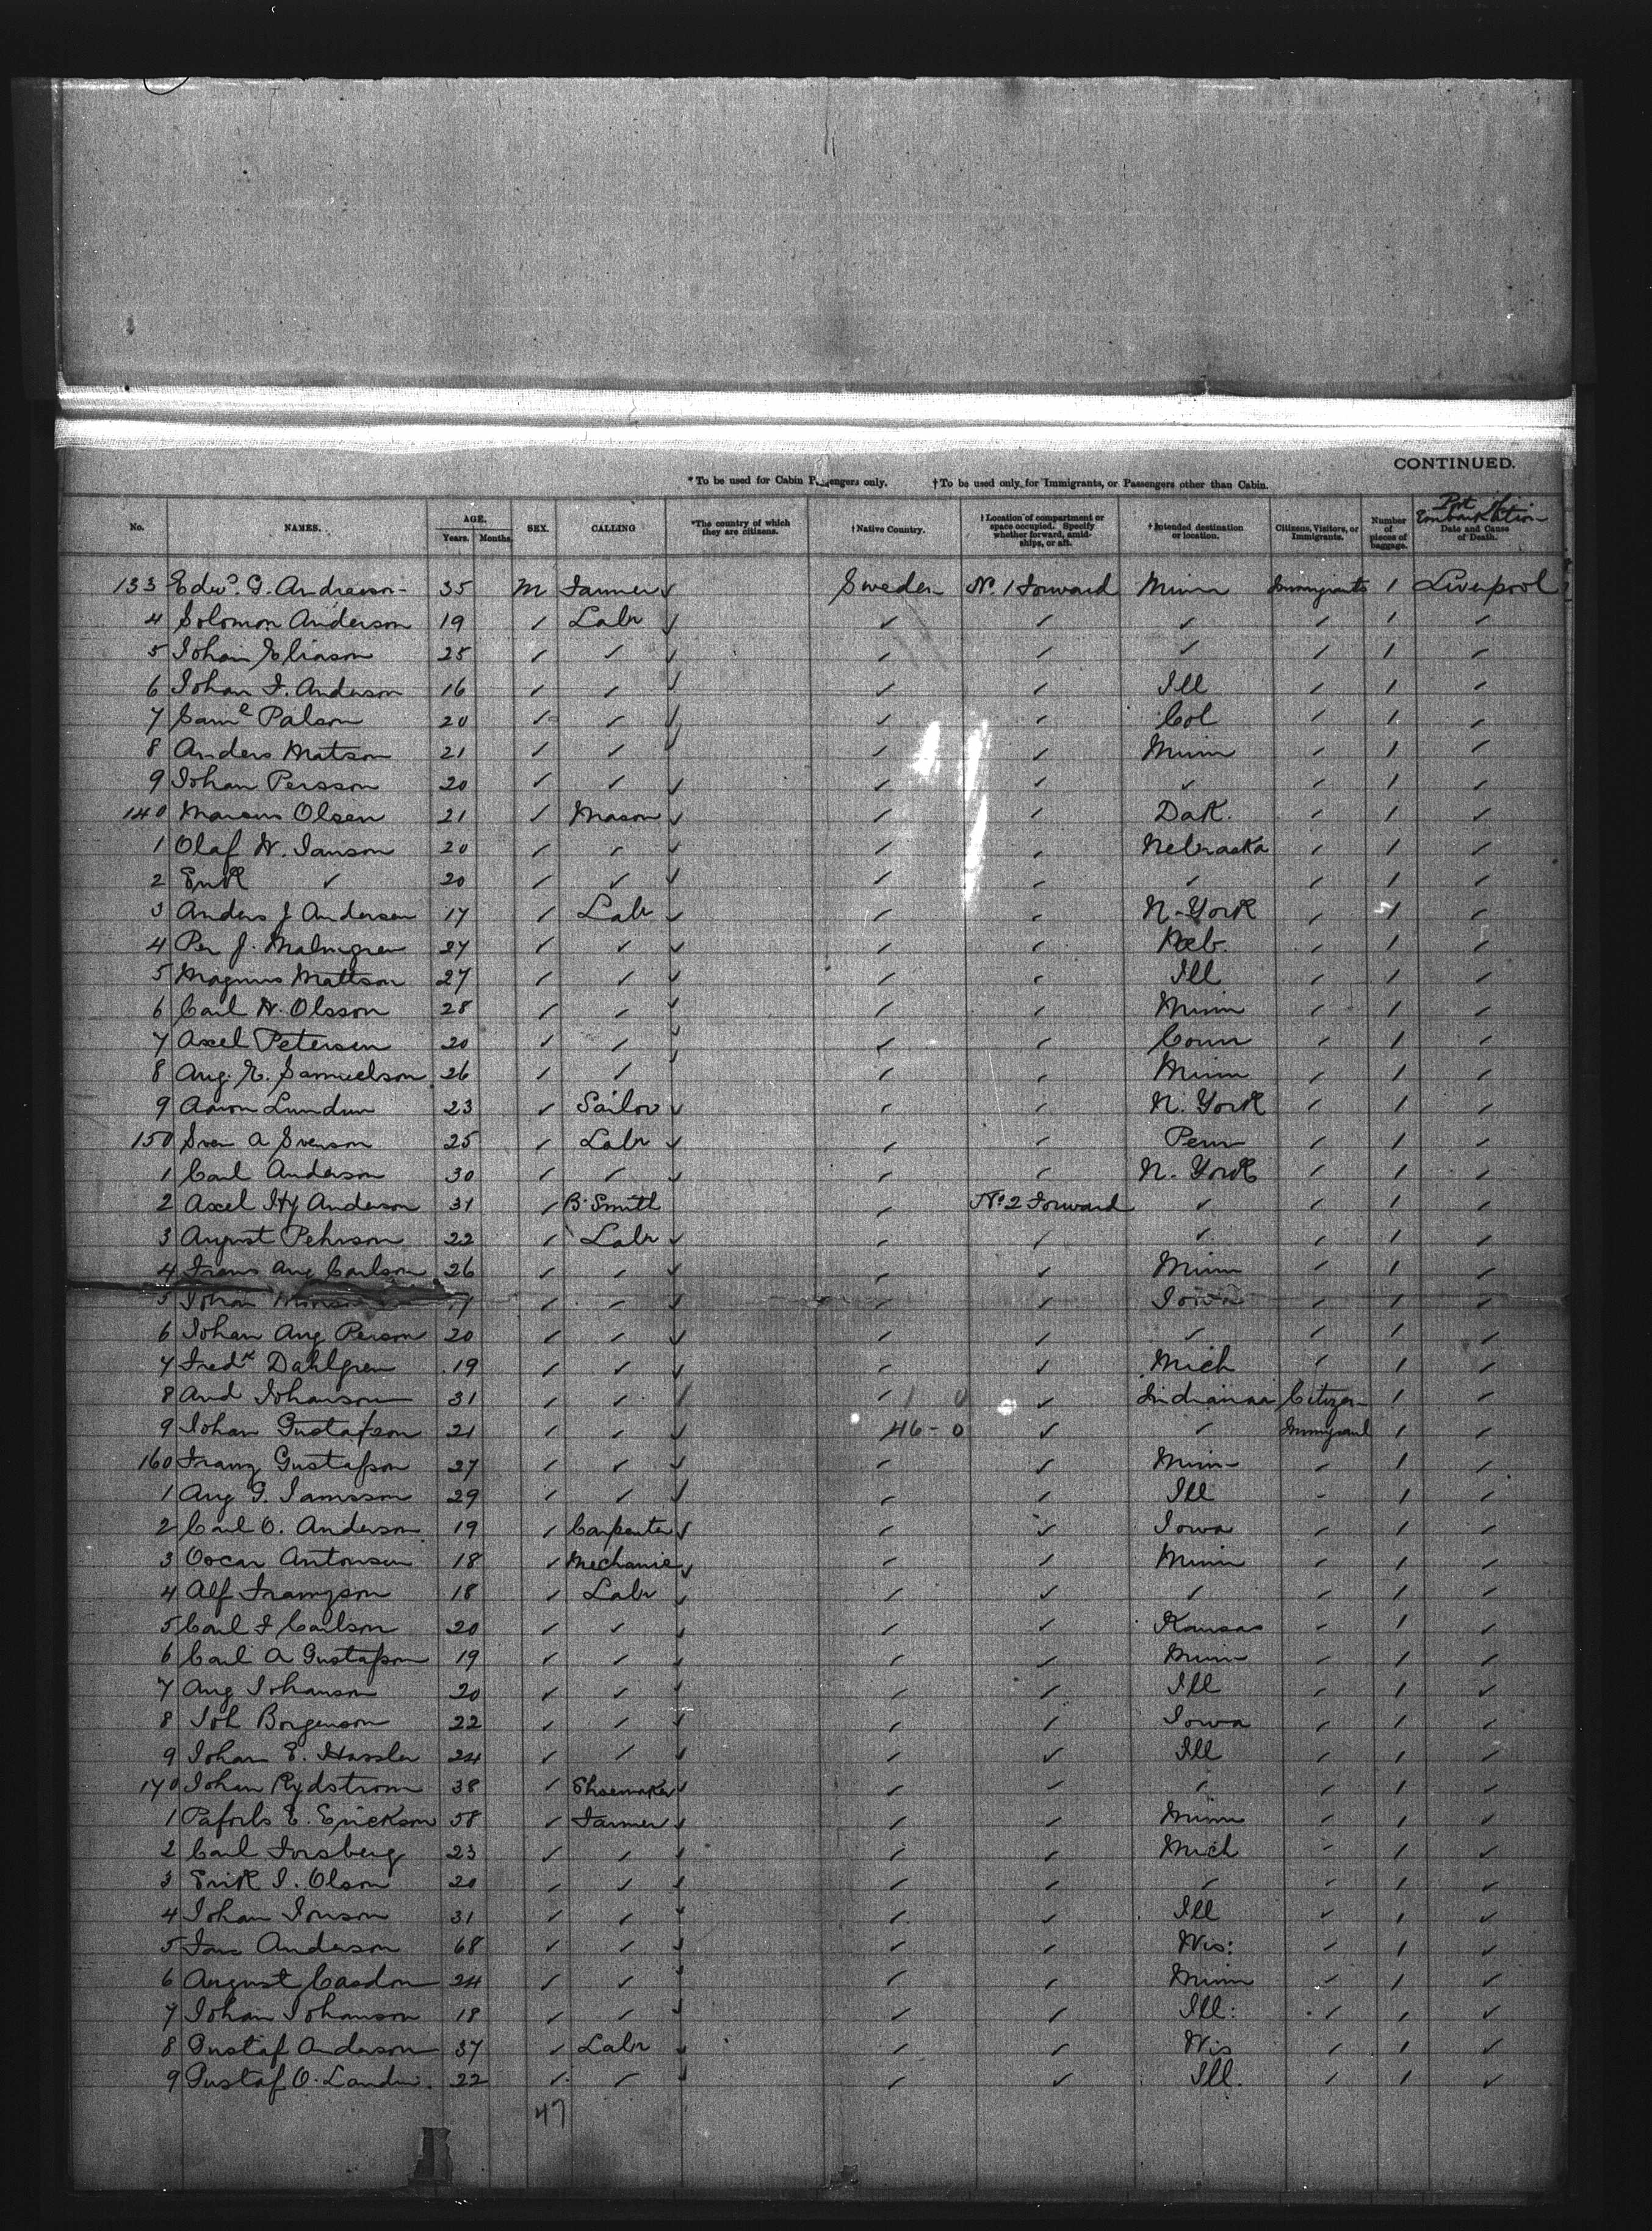 CONTINUED.
*To be used for Cabin Passengers only. †To be used only for Immigrants, or Passengers other than Cabin.
No. NAMES. AGE. Years. Months. SEX. CALLING *The country of which they are citizens. †Native Country. †Location of compartment or space occupied. Specify whether forward, amidships, or aft. †Intended destination or location. Citizens, Visitors, or Immigrants. Number of pieces of baggage. Port of Embarkation Date and Cause of Death.
133 Edwd. G. Andreason 35 M Farmer ✓ Sweden No. 1 Forward Minn Immigrants 1 Liverpool
4 Solomon Anderson 19 ✓ Labr ✓ ✓ ✓ ✓ ✓ 1 ✓
5 Johan Eliason 25 ✓ ✓ ✓ ✓ ✓ ✓ ✓ 1 ✓
6 Johan F. Anderson 16 ✓ ✓ ✓ ✓ ✓ Ill ✓ 1 ✓
7 Saml Palson 20 ✓ ✓ ✓ ✓ ✓ Col ✓ 1 ✓
8 Anders Matson 21 ✓ ✓ ✓ ✓ ✓ Minn ✓ 1 ✓
9 Johan Persson 20 ✓ ✓ ✓ ✓ ✓ ✓ ✓ 1 ✓
140 Marcus Olsen 21 ✓ Mason ✓ ✓ ✓ Dak. ✓ 1 ✓
1 Olaf W. Janson 20 ✓ ✓ ✓ ✓ ✓ Nebraska ✓ 1 ✓
2 Erik ✓ 20 ✓ ✓ ✓ ✓ ✓ ✓ ✓ 1 ✓
3 Anders J Andersen 17 ✓ Labr ✓ ✓ ✓ N-York ✓ 1 ✓
4 Per J. Malmgren 27 ✓ ✓ ✓ ✓ ✓ Neb. ✓ 1 ✓
5 Magnus Mattson 27 ✓ ✓ ✓ ✓ ✓ Ill ✓ 1 ✓
6 Carl W. Olsson 28 ✓ ✓ ✓ ✓ ✓ Minn ✓ 1 ✓
7 Axel Petersen 20 ✓ ✓ ✓ ✓ ✓ Conn ✓ 1 ✓
8 Aug. E. Samuelson 26 ✓ ✓ ✓ ✓ Minn ✓ 1 ✓
9 Aaron Lundun 23 ✓ Sailor ✓ ✓ ✓ N. York ✓ 1 ✓
150 Sven A Svenson 25 ✓ Labr ✓ ✓ ✓ Penn ✓ 1 ✓
1 Carl Anderson 30 ✓ ✓ ✓ ✓ ✓ N. York ✓ 1 ✓
2 Axel Hy Anderson 31 ✓ B. Smith ✓ No 2 Forward ✓ ✓ 1 ✓
3 August Pehrson 22 ✓ Labr ✓ ✓ ✓ ✓ ✓ 1 ✓
4 Frans Aug Carlson 26 ✓ ✓ ✓ ✓ ✓ Minn ✓ 1 ✓
5 Johan ✓ ✓ ✓ ✓ ✓ Iowa ✓ 1 ✓
6 Johan Aug Person 20 ✓ ✓ ✓ ✓ ✓ ✓ ✓ 1 ✓
7 Fredk Dahlgren 19 ✓ ✓ ✓ ✓ ✓ Mich ✓ 1 ✓
8 And Johanson 31 ✓ ✓ ✓ ✓ Indianna Citizen 1 ✓
9 Johan Gustafson 21 ✓ ✓ ✓ 46-0 ✓ ✓ Immigrant 1 ✓
160 Franz Gustafson 27 ✓ ✓ ✓ ✓ ✓ Minn ✓ 1 ✓
1 Aug G. Jamsson 29 ✓ ✓ ✓ ✓ ✓ Ill ✓ 1 ✓
2 Carl O. Anderson 19 ✓ Carpenter ✓ ✓ ✓ Iowa ✓ 1 ✓
3 Oscar Antonsen 18 ✓ Mechanic ✓ ✓ ✓ Minn ✓ 1 ✓
4 Alf Franzson 18 ✓ Labr ✓ ✓ ✓ ✓ ✓ 1 ✓
5 Carl F Carlson 20 ✓ ✓ ✓ ✓ ✓ Kansas ✓ 1 ✓
6 Carl A Gustafson 19 ✓ ✓ ✓ ✓ ✓ Minn ✓ 1 ✓
7 Aug Johanson 20 ✓ ✓ ✓ ✓ ✓ Ill ✓ 1 ✓
8 Joh Borgenson 22 ✓ ✓ ✓ ✓ ✓ Iowa ✓ 1 ✓
9 Johan E. Hassler 24 ✓ ✓ ✓ ✓ ✓ Ill ✓ 1 ✓
170 Johan Rydstrom 38 ✓ Shoemaker ✓ ✓ ✓ ✓ ✓ 1 ✓
1 E. Erickson 58 ✓ Farmer ✓ ✓ ✓ Minn ✓ 1 ✓
2 Carl Forsberg 23 ✓ ✓ ✓ ✓ ✓ Mich ✓ 1 ✓
3 Erik J. Olson 20 ✓ ✓ ✓ ✓ ✓ ✓ ✓ 1 ✓
4 Johan Jonson 31 ✓ ✓ ✓ ✓ ✓ Ill ✓ 1 ✓
5 Anderson 68 ✓ ✓ ✓ ✓ ✓ Wis: ✓ 1 ✓
6 August Casdon 24 ✓ ✓ ✓ ✓ ✓ Minn ✓ 1 ✓
7 Johan Johanson 18 ✓ ✓ ✓ ✓ ✓ Ill: ✓ 1 ✓
8 Gustaf Anderson 37 ✓ Labr ✓ ✓ ✓ Wis ✓ 1 ✓
9 Gustaf O. 22 ✓ ✓ ✓ ✓ ✓ Ill. ✓ 1 ✓
47